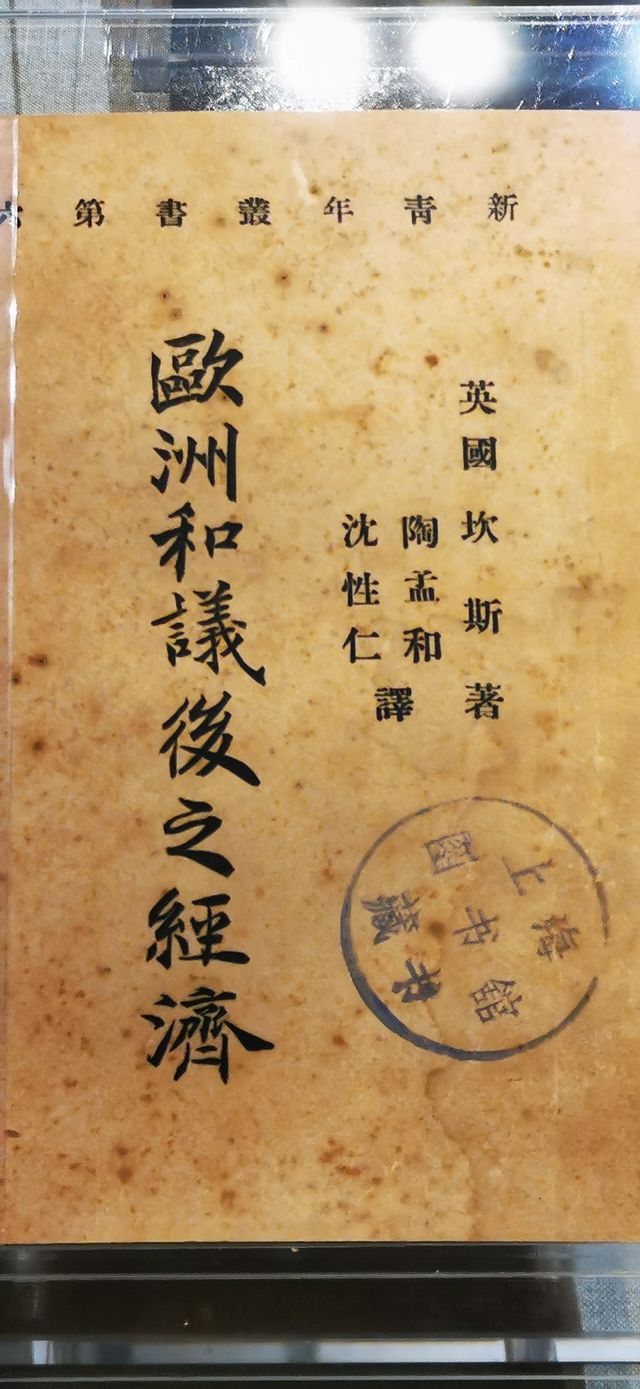 新青年叢書第六
英國坎斯著
陶孟和
沈性仁
譯
歐洲和議後之經濟
上海
图书馆
藏书